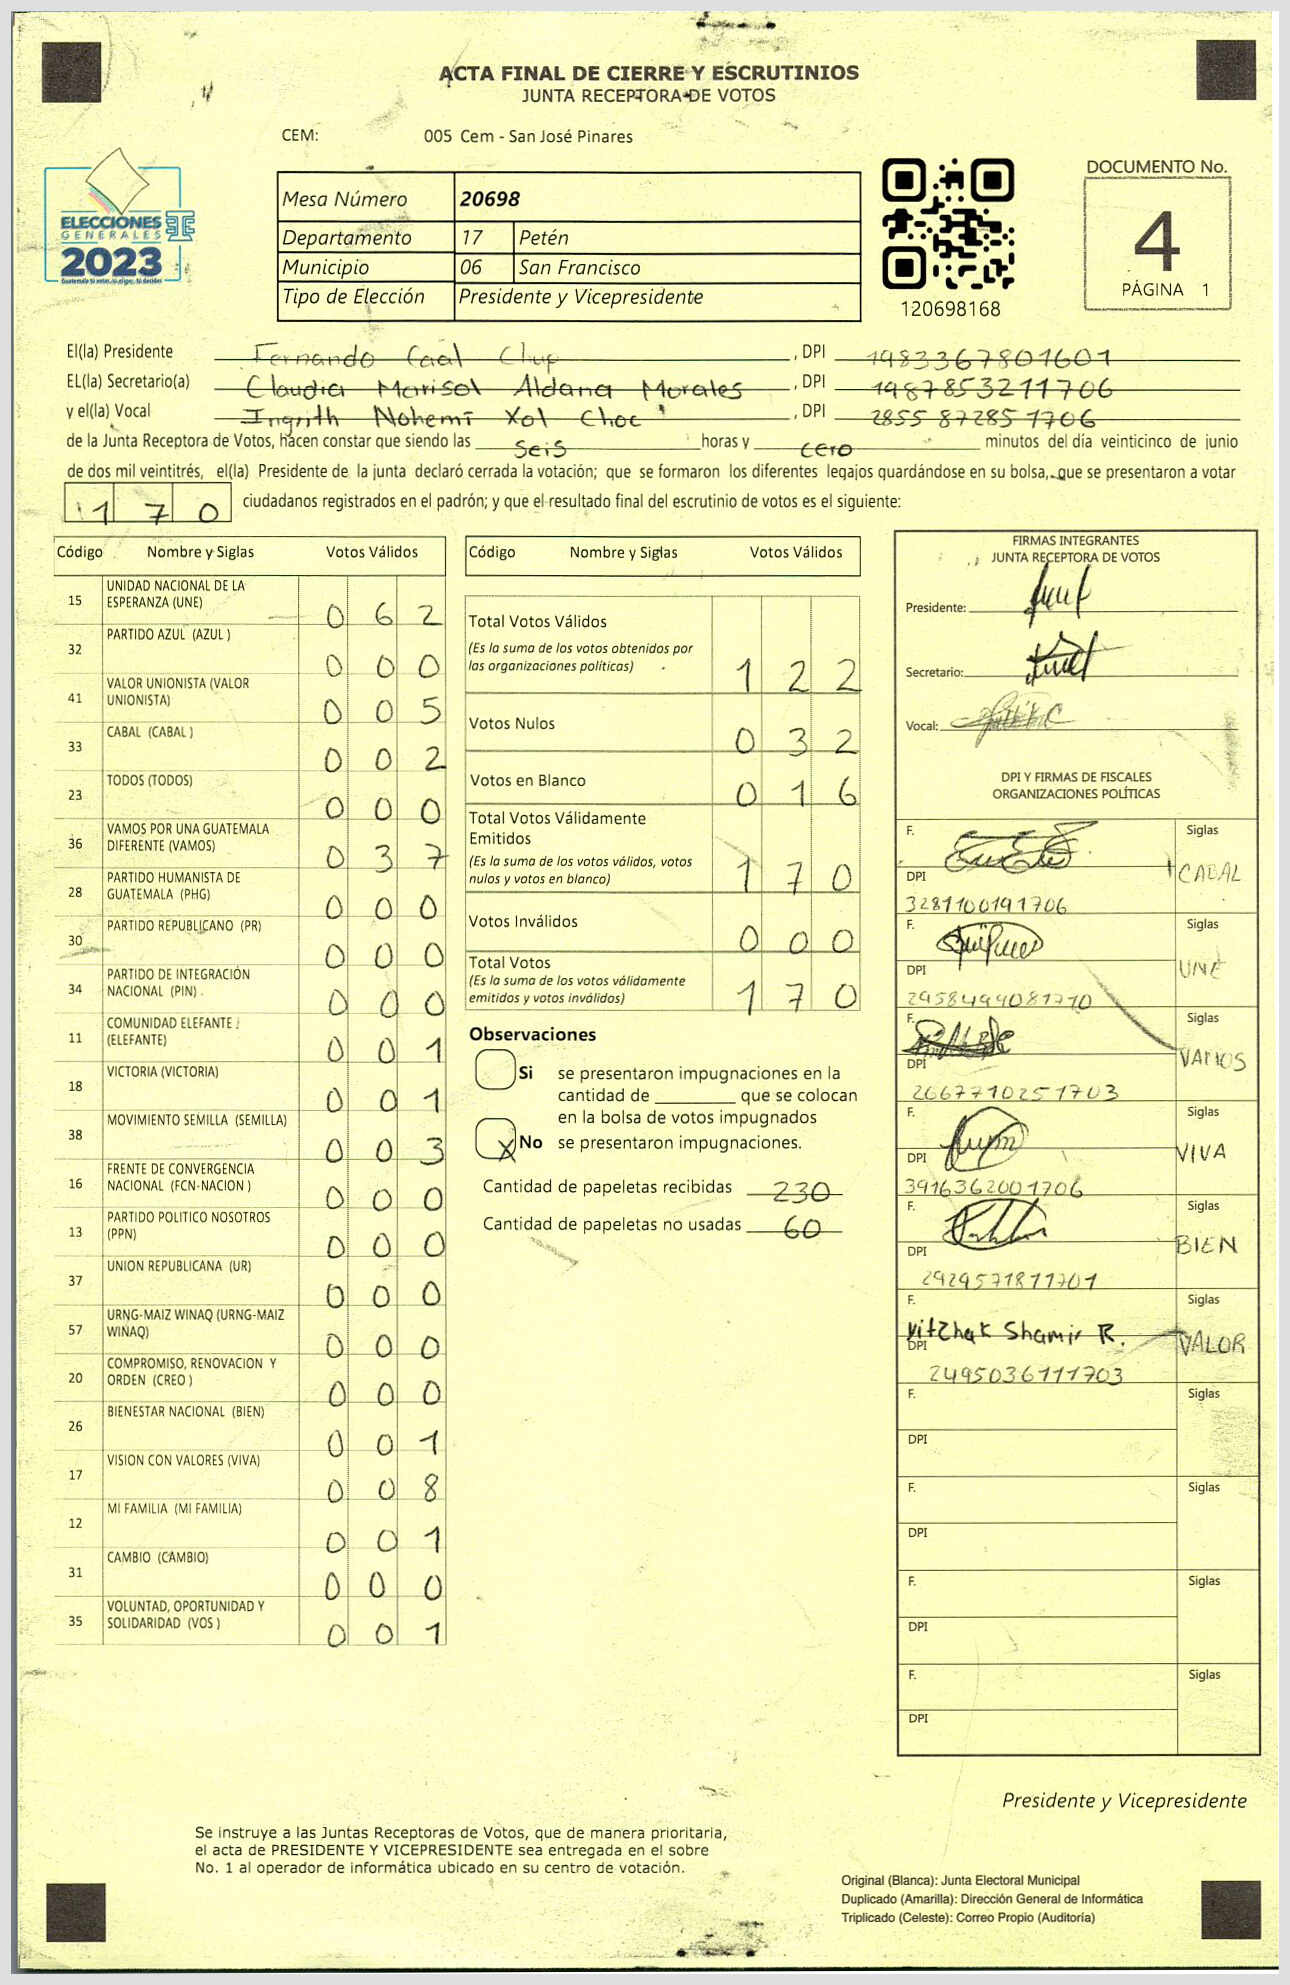 ACTA FINAL DE CIERRE Y ESCRUTINIOS
JUNTA RECEPTORA DE VOTOS
CEM: 005 Cem - San José Pinares
ELECCIONES
GENERALES
2023
Mesa Número 20698
Departamento 17 Petén
Municipio 06 San Francisco
Tipo de Elección Presidente y Vicepresidente
120698168
DOCUMENTO No.
4
PÁGINA 1
El(la) Presidente Fernando Caal Chup, DPI 1983367801601
EL(la) Secretario(a) Claudia Marisol Aldana Morales, DPI 1987853211706
y el(la) Vocal Ingrith Nohemí Xol Choc, DPI 2855 87285 1706
de la Junta Receptora de Votos, hacen constar que siendo las seis horas y cero minutos del día veinticinco de junio
de dos mil veintitrés, el(la) Presidente de la junta declaró cerrada la votación; que se formaron los diferentes legajos quardándose en su bolsa, que se presentaron a votar
170 ciudadanos registrados en el padrón; y que el resultado final del escrutinio de votos es el siguiente:
Código Nombre y Siglas Votos Válidos
15 UNIDAD NACIONAL DE LA ESPERANZA (UNE) 0 6 2
32 PARTIDO AZUL (AZUL ) 0 0 0
41 VALOR UNIONISTA (VALOR UNIONISTA) 0 0 5
33 CABAL (CABAL ) 0 0 2
23 TODOS (TODOS) 0 0 0
36 VAMOS POR UNA GUATEMALA DIFERENTE (VAMOS) 0 3 7
28 PARTIDO HUMANISTA DE GUATEMALA (PHG) 0 0 0
30 PARTIDO REPUBLICANO (PR) 0 0 0
34 PARTIDO DE INTEGRACIÓN NACIONAL (PIN) 0 0 0
11 COMUNIDAD ELEFANTE (ELEFANTE) 0 0 1
18 VICTORIA (VICTORIA) 0 0 1
38 MOVIMIENTO SEMILLA (SEMILLA) 0 0 3
16 FRENTE DE CONVERGENCIA NACIONAL (FCN-NACION ) 0 0 0
13 PARTIDO POLITICO NOSOTROS (PPN) 0 0 0
37 UNION REPUBLICANA (UR) 0 0 0
57 URNG-MAIZ WINAQ (URNG-MAIZ WINAQ) 0 0 0
20 COMPROMISO, RENOVACION Y ORDEN (CREO ) 0 0 0
26 BIENESTAR NACIONAL (BIEN) 0 0 1
17 VISION CON VALORES (VIVA) 0 0 8
12 MI FAMILIA (MI FAMILIA) 0 0 1
31 CAMBIO (CAMBIO) 0 0 0
35 VOLUNTAD, OPORTUNIDAD Y SOLIDARIDAD (VOS ) 0 0 1
Código Nombre y Siglas Votos Válidos
Total Votos Válidos
(Es la suma de los votos obtenidos por las organizaciones políticas) 1 2 2
Votos Nulos 0 3 2
Votos en Blanco 0 1 6
Total Votos Válidamente Emitidos
(Es la suma de los votos válidos, votos nulos y votos en blanco) 1 7 0
Votos Inválidos 0 0 0
Total Votos
(Es la suma de los votos válidamente emitidos y votos inválidos) 1 7 0
Observaciones
Si se presentaron impugnaciones en la
cantidad de ________ que se colocan
en la bolsa de votos impugnados
X No se presentaron impugnaciones.
Cantidad de papeletas recibidas 230
Cantidad de papeletas no usadas 60
FIRMAS INTEGRANTES
JUNTA RECEPTORA DE VOTOS
Presidente:
Secretario:
Vocal:
DPI Y FIRMAS DE FISCALES
ORGANIZACIONES POLÍTICAS
F. Siglas CABAL
DPI 3281100191706
F. Siglas UNE
DPI 2958499081710
F. Siglas VAMOS
DPI 2667710251703
F. Siglas VIVA
DPI 3916362001706
F. Siglas BIEN
DPI 2929571811701
F. Yitzhak Shamir R. Siglas VALOR
DPI 2495036111703
F. Siglas
DPI
F. Siglas
DPI
F. Siglas
DPI
F. Siglas
DPI
Presidente y Vicepresidente
Se instruye a las Juntas Receptoras de Votos, que de manera prioritaria,
el acta de PRESIDENTE Y VICEPRESIDENTE sea entregada en el sobre
No. 1 al operador de informática ubicado en su centro de votación.
Original (Blanca): Junta Electoral Municipal
Duplicado (Amarilla): Dirección General de Informática
Triplicado (Celeste): Correo Propio (Auditoría)